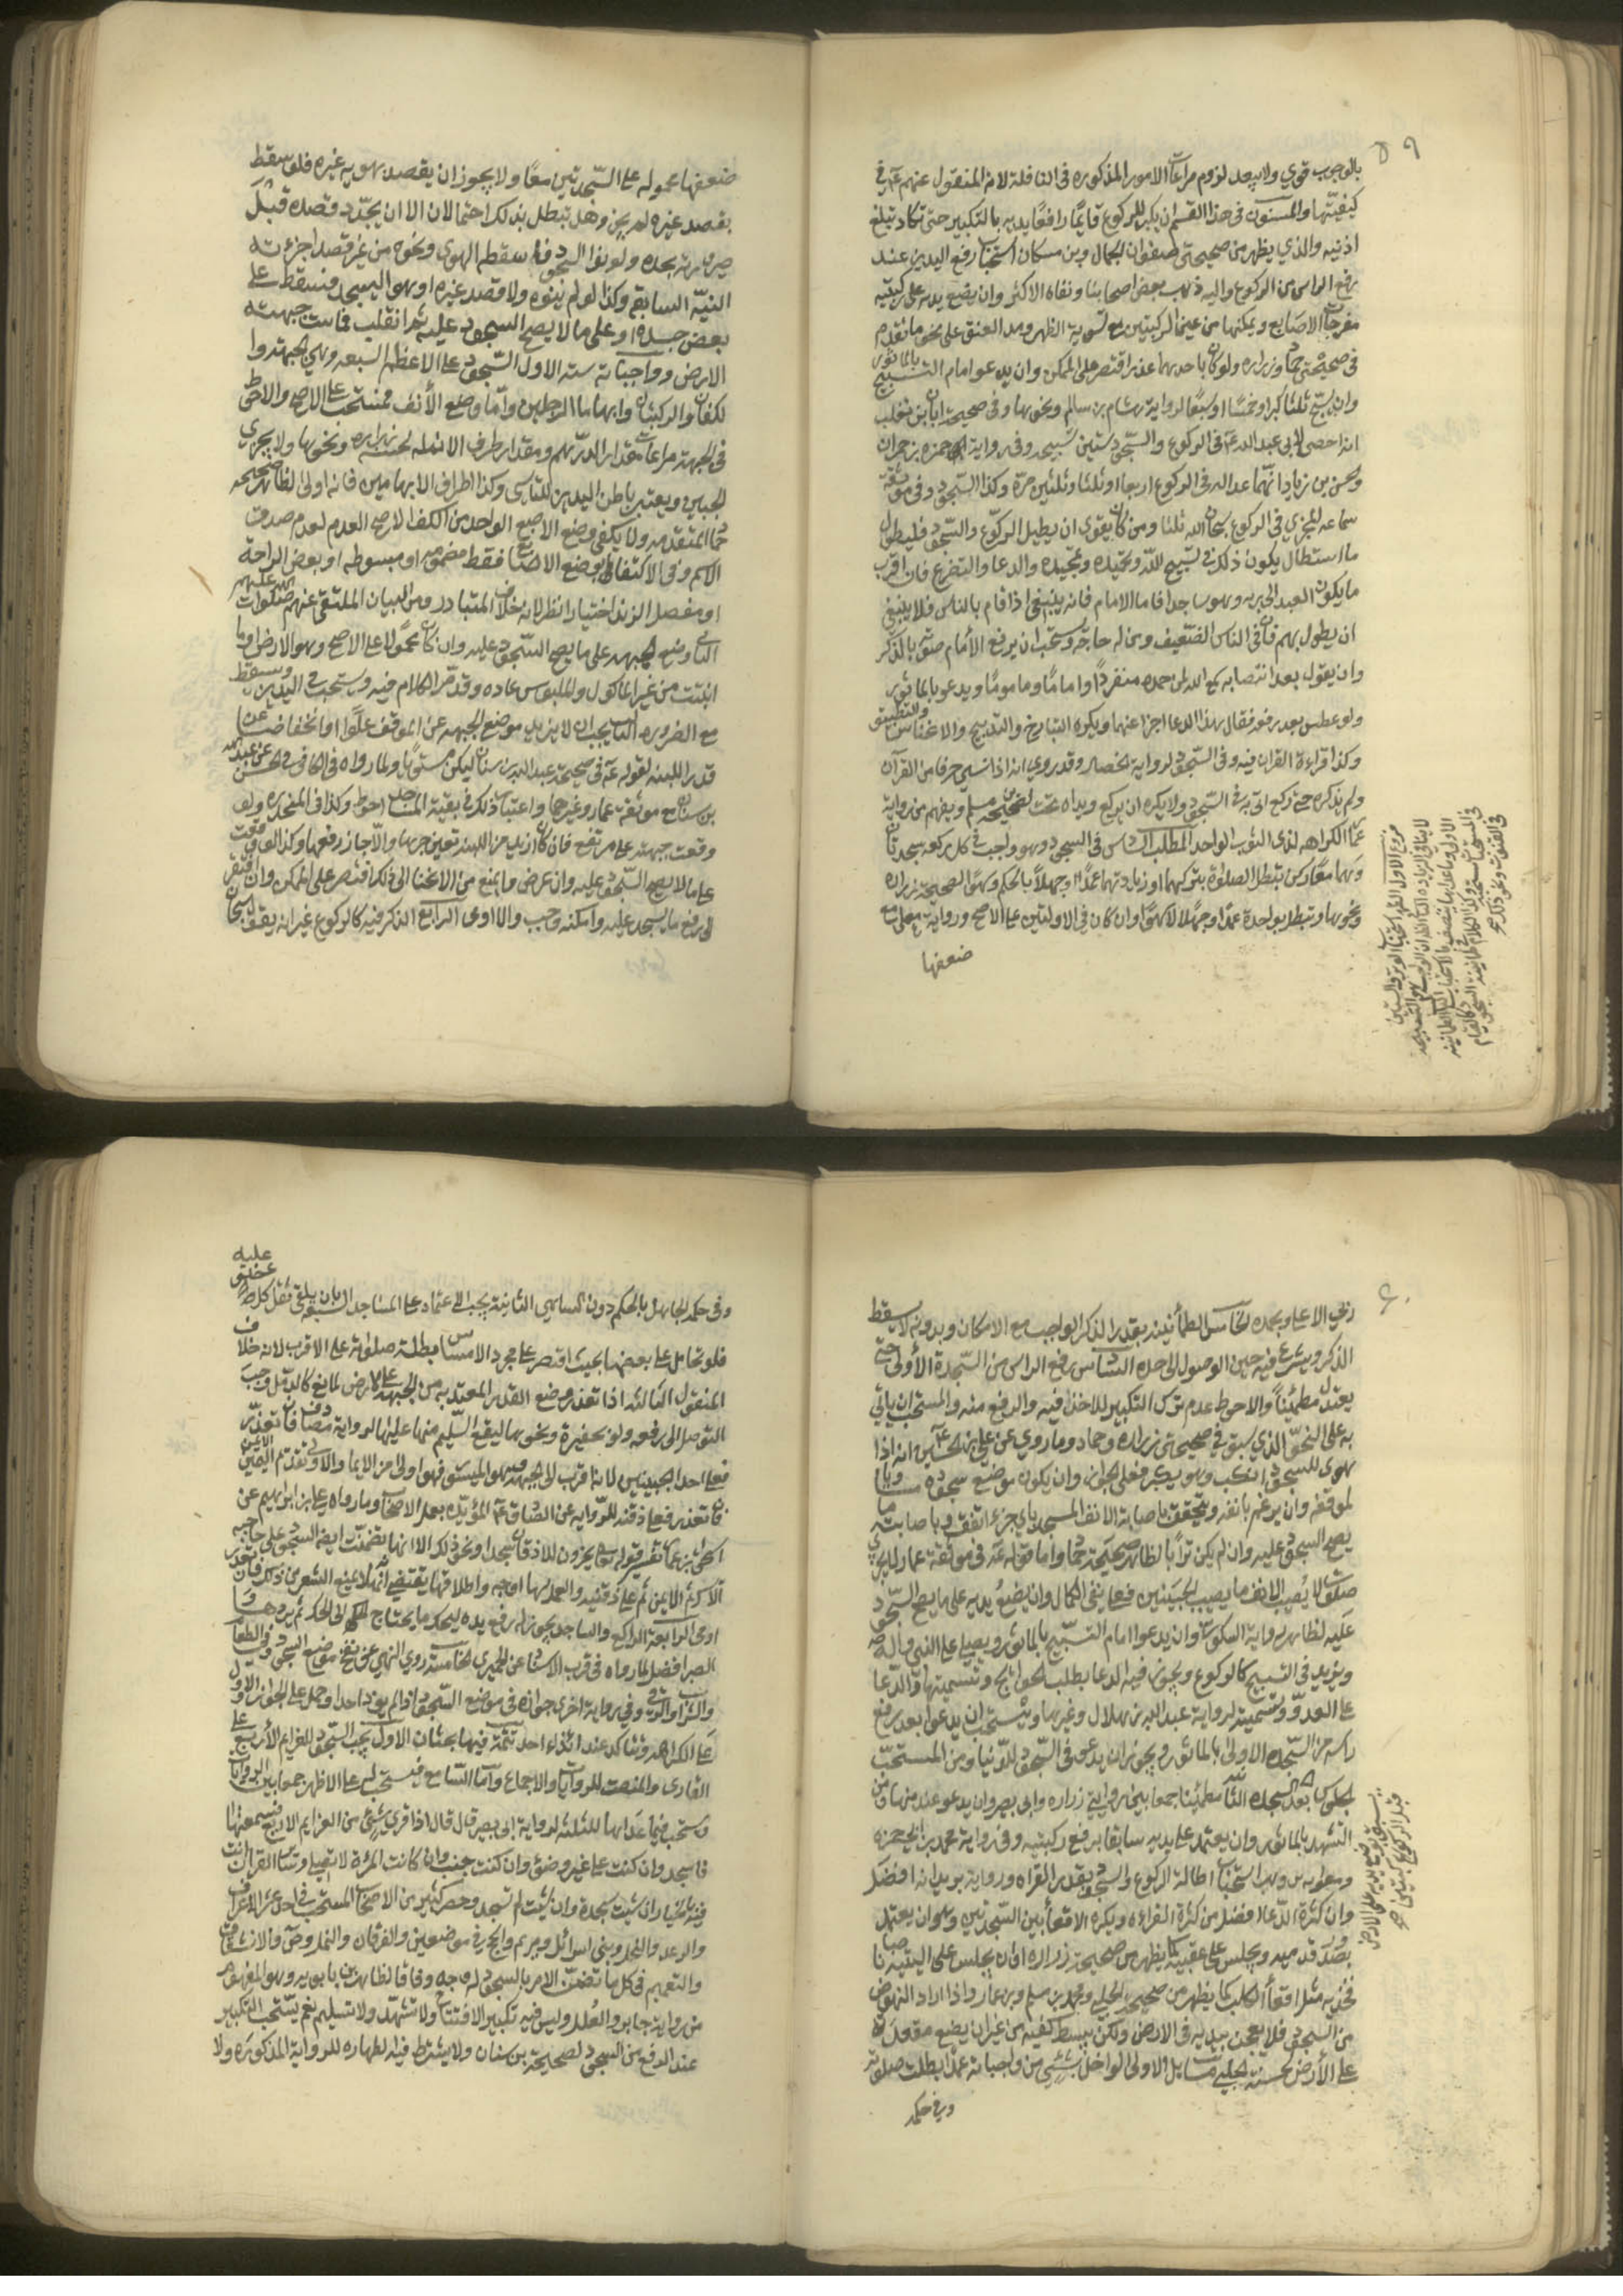 ٥٩
بالوجوب قوي ولا يبعد لزوم مراعاة الامور المذكوره فى النافلة لانه المنقول عنهم ع في
كيفيتها والمسنون فى هذا القسم ان يكبر للركوع قايمًا رافعًا يديه بالتكبير حتى تكاد تبلغ
اذنيه والذي يظهر من صحيحتى صفوان الجمال وبن مسكان استحباب رفع اليدين عند
رفع الراس من الركوع واليه ذهب بعض اصحابنا ونفاه الاكثر وان يضع يديه على ركبتيه
مفرجات الاصابع ويمكنها من عينى الركبتين مع تسوية الظهر ومد العنق على نحو ما تقدم
فى صحيحتى حماد وزراره ولو كان باحديهما عذر اقتصر على الممكن وان يدعو امام التسبيح بالماثور
وان يسبح ثلثا كبرا وخمسًا او سبعًا لرواية هشام بن سالم ونحوها وفى صحيحة ابان بن تغلب
انه احصى لابي عبد الله ع فى الركوع والسجود ستين تسبيحه وفى رواية حمزه بن حمران
والحسن بن زياد انهما عدا له فى الركوع اربعا او ثلثا وثلثين مرّة وكذا السجود وفى موثقة
سماعه المجزي فى الركوع سبحان الله ثلثا ومن كان يقوى ان يطيل الركوع والسجود فليطول
ما استطاع يكون ذلك في تسبيح الله وتحميده وتمجيده والدعا والتضرع فان اقرب
ما يكون العبد الى ربه وهو ساجد فاما الامام فانه ينبغى اذا قام بالناس فلا ينبغي
ان يطول بهم فان فى الناس الضعيف ومن له حاجة ويستحب ان يرفع الأمام صوته بالذكر
وان يقول بعد انتصابه سمع الله لمن حمده منفردًا او امامًا وماموما ويدعو بالماثور
ولو عطس بعد رفعه فقال بهذا الدعا اجزا عنهما ويكره التبازخ والتدبيح والانخناس والتطبيق
وكذا قراءة القران فيه وفى السجود لرواية الخصال وقد روي انه اذا نسي حرفا من القرآن
ولم يذكره حتى ركع اتى به في السجود ولا يكره ان يركع ويداه تحت لصحيحة بن مسلم ويفهم من رواية
عمار الكراهه لذى الثوب الواحد المطلب السادس فى السجود وهو واجب في كل ركعه سجدتان
وهما معًا ركن تبطل الصلوة بتركهما او زيادتهما عمدًا وجهلاً بالحكم وسهوًا لصحيحة زراره
ونحوها وتبطل بواحدة عمدًا وجهلا لا سهوًا وان كان فى الاولتين على الاصح ورواية معلى مع
ضعفها
ضعفها محمولة على السّجدتين معًا ولا يجوز ان يقصد بهويه غيره فلو سقط
بقصد غيره لم يجز وهل تبطل بذلك احتمالان الا ان يجدّد قصده قبل
صيرورته بحده ولو نوا السجود فسقط الهوى ونحوه من غير قصد اجزءته
النيّة السابقة وكذا لو لم ينوه ولا قصد غيره او هوا ليسجد فسقط على
بعض جسده او على ما لا يصح السجود عليه ثم انقلب فماست جبهته
الارض وواجباته سته الاول السّجود على الاعظم السبعه وهي الجبهة وا
لكفان والركبتان وابهاما الرجلين وامّا وضع الأنف فمستحب على الاصح والاحوط
فى الجبهة مراعات مقدار الدرهم ومقدار طرف الانمله لحسنة زراره ونحوها ولا يجزي
الجبين ويعتبر باطن اليدين للتاسى وكذا اطراف الابهامين فانه اولى لظاهر صحيحه
حماد المتقدمه ولا يكفى وضع الاصبع الواحد من الكف الاصح العدم لعدم صدق
الاسم وفى الاكتفا بوضع الاصابع فقط مضمومه او مبسوطه او بعض الراحة
او مفصل الزند اختيارا نظر لانه خلاف المتبادر ومن البيان المتلقى عنهم صلوات الله عليهم
الثانى وضع الجبهه على ما يصح السّجود عليه وان كان محمولا على الاصح وهو الارض وما
انبتت من غير الماكول والملبوس عاده وقد مرّ الكلام فيه ويستحب فى اليدين وسقط
مع الضروره الثالث يجب ان لا يزيد موضع الجبهه عن الموقف علوًا او انخفاضا عن
قدر اللبنه لقوله ع فى صحيحة عبد الله بن سنان ليكن مستويًا ولما رواه فى الكافى
بن سنان مع موثقة عمار وغيرها واعتبار ذلك في بقية المساجد احوط وكذا فى المنحدره ولو
وقعت جبهته على مرتفع فان كان ازيد من اللبنه تعين جرها والاّ جاز رفعها وكذا لو وقعت
على ما لا يصح السّجود عليه وان عرض ما يمنع من الانحنا الى ذلك اقتصر على الممكن وان افتقر
الى رفع ما يسجد عليه وامكنه وجب والا اومى الرابع الذكر فيه كالركوع غير انه يقول سبحان
٦٠
ربي الاعلى وبحمده الخامس الطمأنينه بقدر الذكر الواجب مع الامكان وبدونه لا يسقط
الذكر ويشرع فيه حين الوصول الى حده السادس رفع الراس من السّجدة الأولى حتى
يعتدل مطمئناً والاحوط عدم ترك التكبير للاخذ فيه والرفع منه والمستحب ان ياتي
به على النحو الذي سبق فى صحيحتى زراره وحماد وما روي عن علي بن الحسين ع انه اذا
هوى للسجود انكب وهو يكبر فعلى الجواز وان يكون موضع سجوده مساويا
لموقفه وان يرغم بانفه ويتحقق باصابة الانف المسجد باي جزء اتفق وباصابته ما
يصح السجود عليه وان لم يكن ترابًا لظاهر صحيحة حماد واما قوله ع فى موثقة عمار لا يجزي
صلوة لا يُصيب الانف ما يصيب الجبينين فعلى نفى الكمال وان يضع يديه على ما يصح السّجود
عليه لظاهر رواية السكونى وان يدعوا امام التسبيح بالماثور ويصلي على النبي واله
ويزيد فى التسبيح كالركوع ويجوز فيه الدعا بطلب الحوائج وتسميتها والدّعا
على العدوّ وتسميته لرواية عبد الله بن هلال وغيرها ويستحب ان يدعوا بعد رفع
راسه من السّجده الاولى بالماثور ويجوز ان يدعو فى السّجود للدّنيا ومن المستحبّ
الجلوس بعد السجده الثانيه مطمئنا جمعا بين روايتى زراره وابى بصير وان يدعو عند منها ومن
التشهد بالماثور وان يعتمد على يديه سابقا برفع ركبتيه وفى رواية محمد بن ابي حمزه
ومعاويه بن وهب استحباب اطالة الركوع والسّجود بقدر القراه ورواية بريد انه افضل
وان كثرة الدّعا افضل من كثرة القراءه ويكره الاقعأ بين السّجدتين وهو ان يعتمد
بصدور قدميه ويجلس على عقبيه كما يظهر من صحيحة زراره او ان يجلس على اليتيه ناصبا
فخذيه مثل اقعأ الكلب كما يظهر من صحيحة الحلبي ومحمد بن مسلم وبن عمار واذا اراد النهوض
من السجود فلا يعجن بيديه فى الارض ولكن يبسط كفيه من غير ان يضع مقعدته
على الأرض لحسنة الحلبي مسايل الاولى لو اخل بشئ من واجباته عمدًا بطلت صلوته
وفي حكمه
وفى حكمه الجاهل بالحكم دون الناسي الثانية يجب الاعتماد على المساجد السبعه بان يلقى ثقل كل عضو عليه
فلو تحامل على بعضها بحيث اقتصر على مجرد الامساس بطلت صلوته على الاقرب لانه خلاف
المنقول الثالثه اذا تعذر وضع القدر المعتد به من الجبهه على الارض لمانع كالدمل وجب
التوصل الى رفعه ولو بحفيرة ونحوها ليقع السّليم منها عليها لرواية مصادف فان تعذّر
فعلى احد الجبينين لانه اقرب الى الجبهه فهو اولى من الايما والاولى تقديم الايمن
فان تعذر فعلى ذقنه للرّوايه عن الصادق ع المؤيّده بعمل الاصحاب وما رواه علي بن ابراهيم عن
الاكرش الايمن ثم على ذقنه والعمل بها اوجه واطلاقها يقتضي انه لا يمنع الشعر من ذلك فان تعذر
اومى الرابعة الراكع والساجد يجوز له رفع يده ليحك ما يحتاج الى الحك ثم يردها و
الصبر افضل لما رواه فى قرب الاسناد عن الحميري الخامسة روي النهي عن نفخ موضع السجود وفى الطعام
والشراب والرقى وفى رواية اخرى جوازه فى موضع السّجود اذا لم يوذ احدا وحمل على الجواز والاول
على الكراهه وتتاكد عند ايذاء احد تتمّة فيها بحثان الاول يجب السّجود للعزايم الأربع على
القارى والمنصت للروايات والاجماع وامّا السّامع فيستحب له على الاظهر جمعا بين الروايات
ويستحب فيما عداها للثلثه لرواية ابى بصير قال قال اذا قري شئ من العزايم الاربع فسمعتها
فاسجد وان كنت على غير وضوء وان كنت جنب وان كانت المرأة لا تصلي وسائر القران انت
فيه بالخيار ان شيت سجدة وان شيت لم تسجد وحصر كثير من الاصحاب المستحب فى احد عشر الاعراف
والرعد والنحل وبنى اسرائل ومريم والحج فى موضعين والفرقان والنمل وص والانشقاق
والتعميم فى كل ما تضمّن الامر بالسجود له وجه وفاقا لظاهر بن بابويه وهو المفهوم
من رواية جابر والعلل وليس فيه تكبير الافتتاح ولا تشهّد ولا تسليم نعم يستحب التكبير
عند الرفع من السجود لصحيحة بن سنان ولا يشترط فيه الطهاره للرواية المذكوره ولا